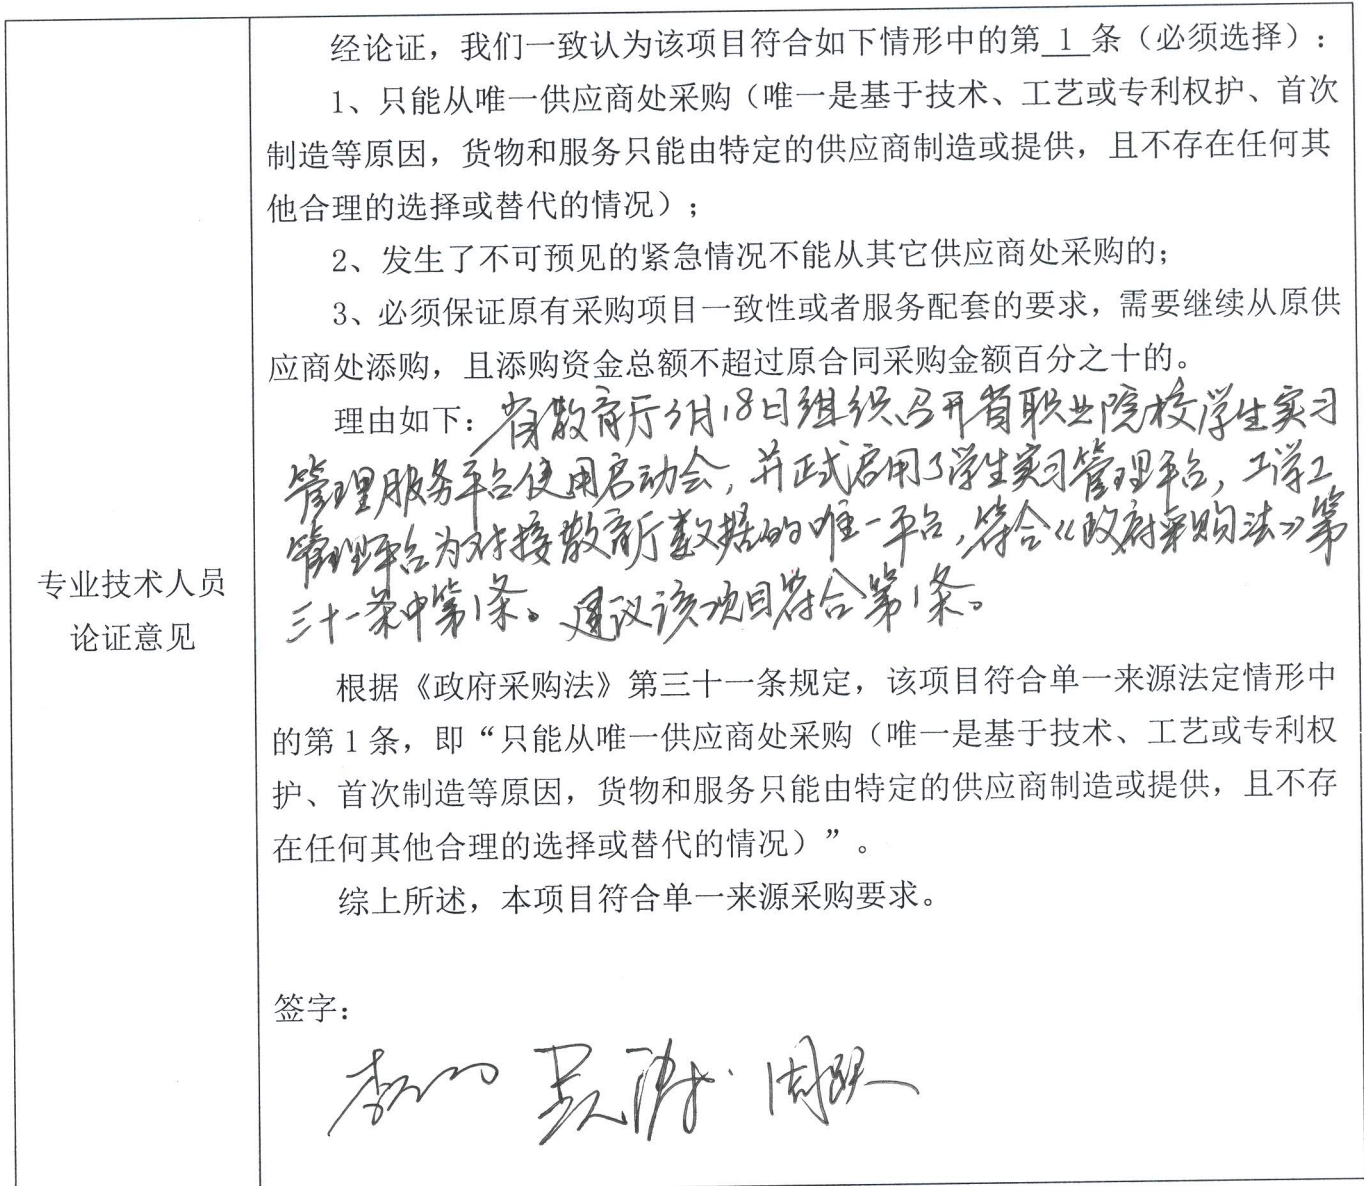 专业技术人员
论证意见
经论证，我们一致认为该项目符合如下情形中的第 1 条（必须选择）：
1、只能从唯一供应商处采购（唯一是基于技术、工艺或专利权护、首次
制造等原因，货物和服务只能由特定的供应商制造或提供，且不存在任何其
他合理的选择或替代的情况）；
2、发生了不可预见的紧急情况不能从其它供应商处采购的；
3、必须保证原有采购项目一致性或者服务配套的要求，需要继续从原供
应商处添购，且添购资金总额不超过原合同采购金额百分之十的。
理由如下：省教育厅3月18日组织召开省职业院校学生实习
管理服务平台使用启动会，并正式启用了学生实习管理平台，工学工
管理平台为对接教育厅数据的唯一平台，符合《政府采购法》第
三十一条中第1条。建议该项目符合第1条。
根据《政府采购法》第三十一条规定，该项目符合单一来源法定情形中
的第 1 条，即“只能从唯一供应商处采购（唯一是基于技术、工艺或专利权
护、首次制造等原因，货物和服务只能由特定的供应商制造或提供，且不存
在任何其他合理的选择或替代的情况）”。
综上所述，本项目符合单一来源采购要求。
签字：
周跃